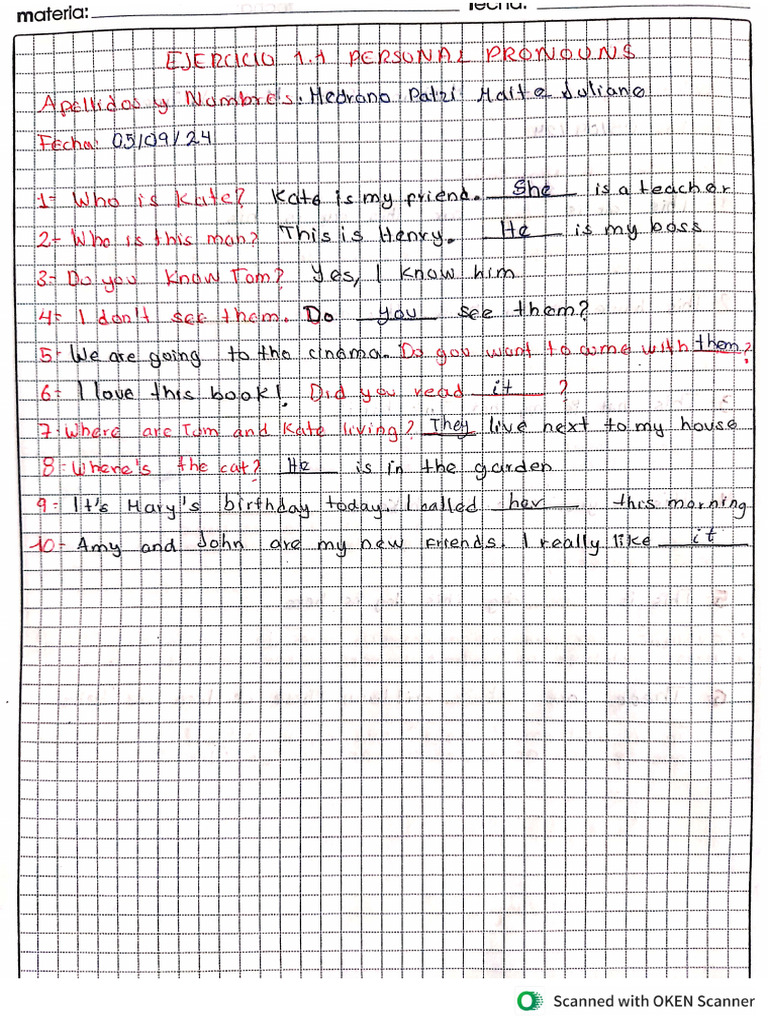 materia: fecha:
EJERCICIO 1.1 PERSONAL PRONOUNS
Apellidos y Nombres: Medrano Patzi Maite Juliane
Fecha: 05/09/24
1- Who is Kate? Kate is my friend. She is a teacher
2- Who is this man? This is Henry. He is my boss
3- Do you know Tom? Yes, I know him
4- I don't see them. Do you see them?
5- We are going to the cinema. Do you want to come with them?
6- I love this book!. Did you read it ?
7- Where are Tom and Kate living? They live next to my house
8- Where's the cat? He is in the garden
9- It's Mary's birthday today. I called her this morning
10- Amy and John are my new friends. I really like it
Scanned with OKEN Scanner